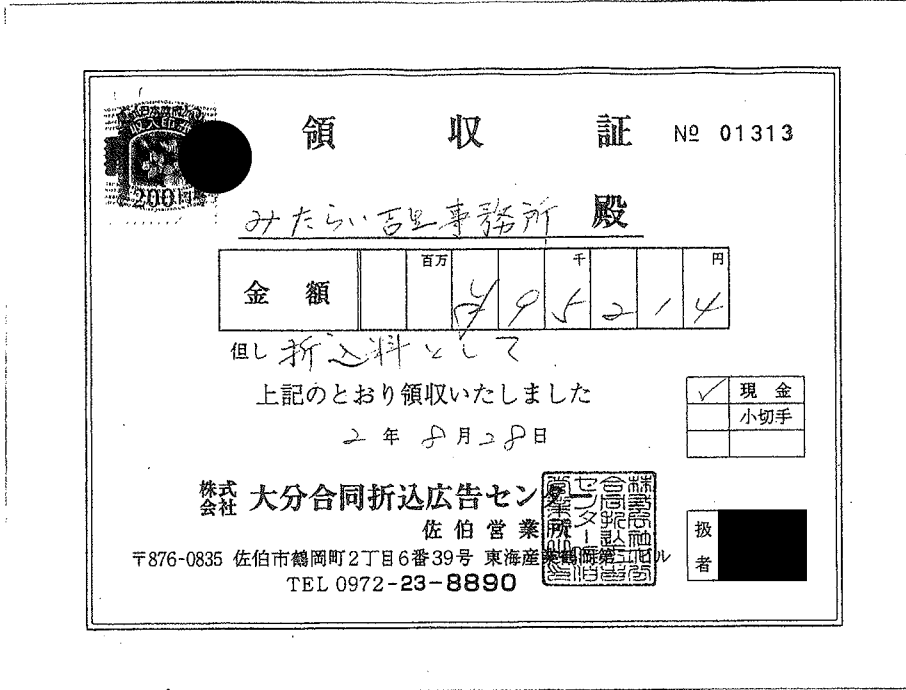 領収証 № 01313
日本政府
収入印紙
200円
みたらい吉里事務所 殿
金額 百万 千 円
¥95214
但し 折込料として
上記のとおり領収いたしました
✓ 現金
小切手
2年8月28日
株式会社 大分合同折込広告センター
佐伯営業所
〒876-0835 佐伯市鶴岡町2丁目6番39号 東海産業鶴岡第二ビル
TEL 0972-23-8890
扱者